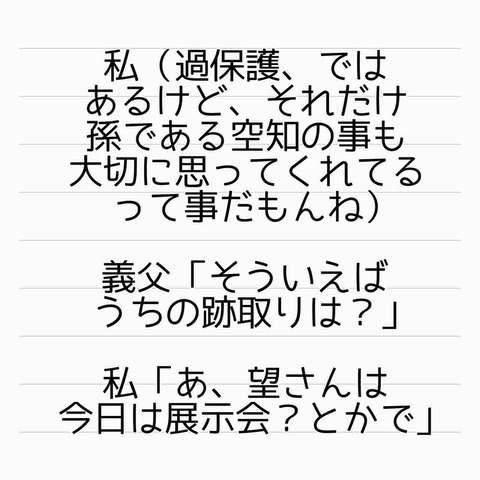 私（過保護、では
あるけど、それだけ
孫である空知の事も
大切に思ってくれてる
って事だもんね）
義父「そういえば
うちの跡取りは？」
私「あ、望さんは
今日は展示会？とかで」